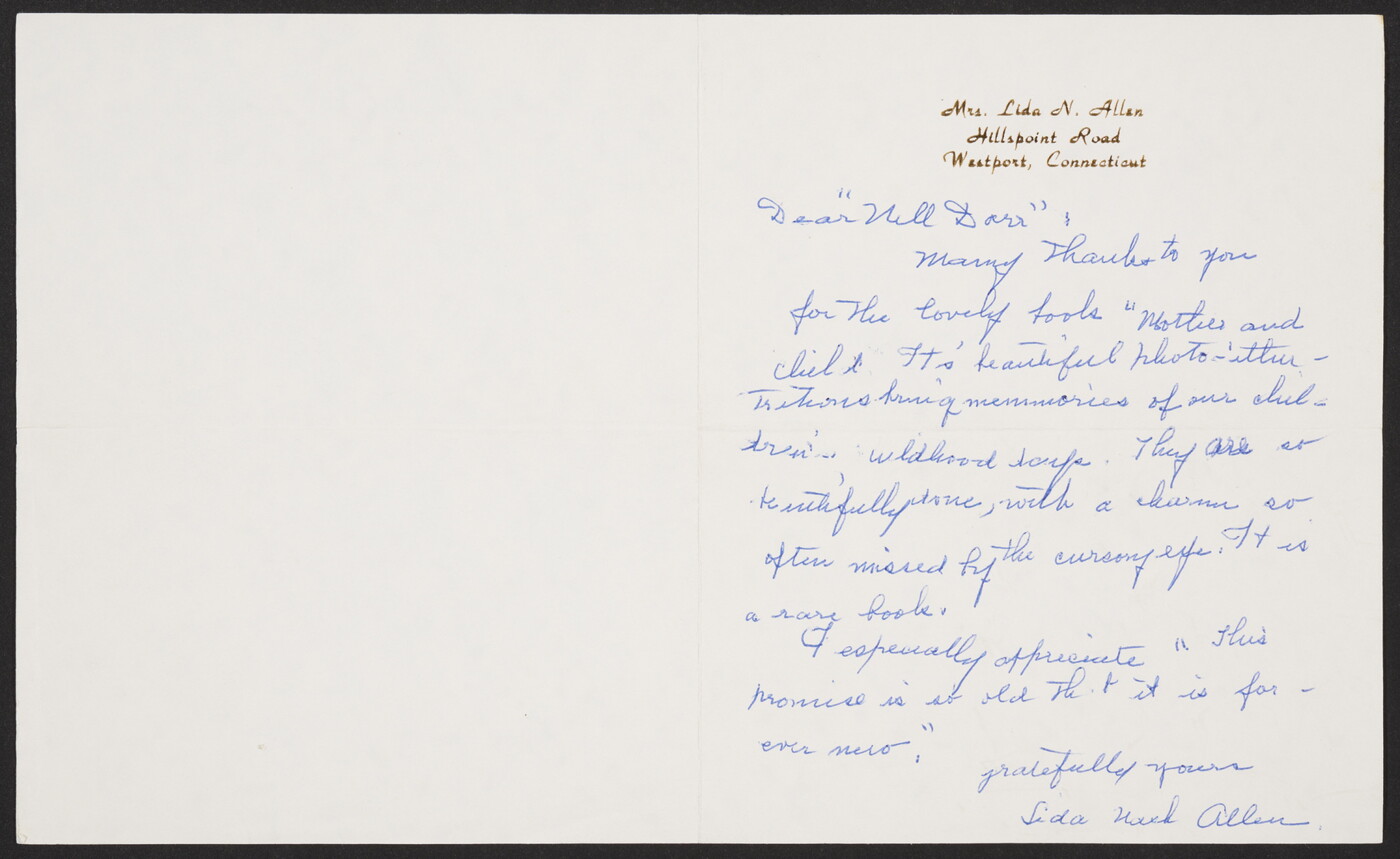 Mrs. Lida N. Allen
Hillspoint Road
Westport, Connecticut
Dear "Nell Dorr" :
Many Thanks to you
for The lovely book "Mother and
Child. It's beautiful photo-
bring memmories of our chil-
dren's days. They are so
done, with a charm so
often missed by the cursory eye. It is
a rare book.
I especially appreciate " This
promise is so old that it is for-
ever new".
gratefully yours
Lida Allen.